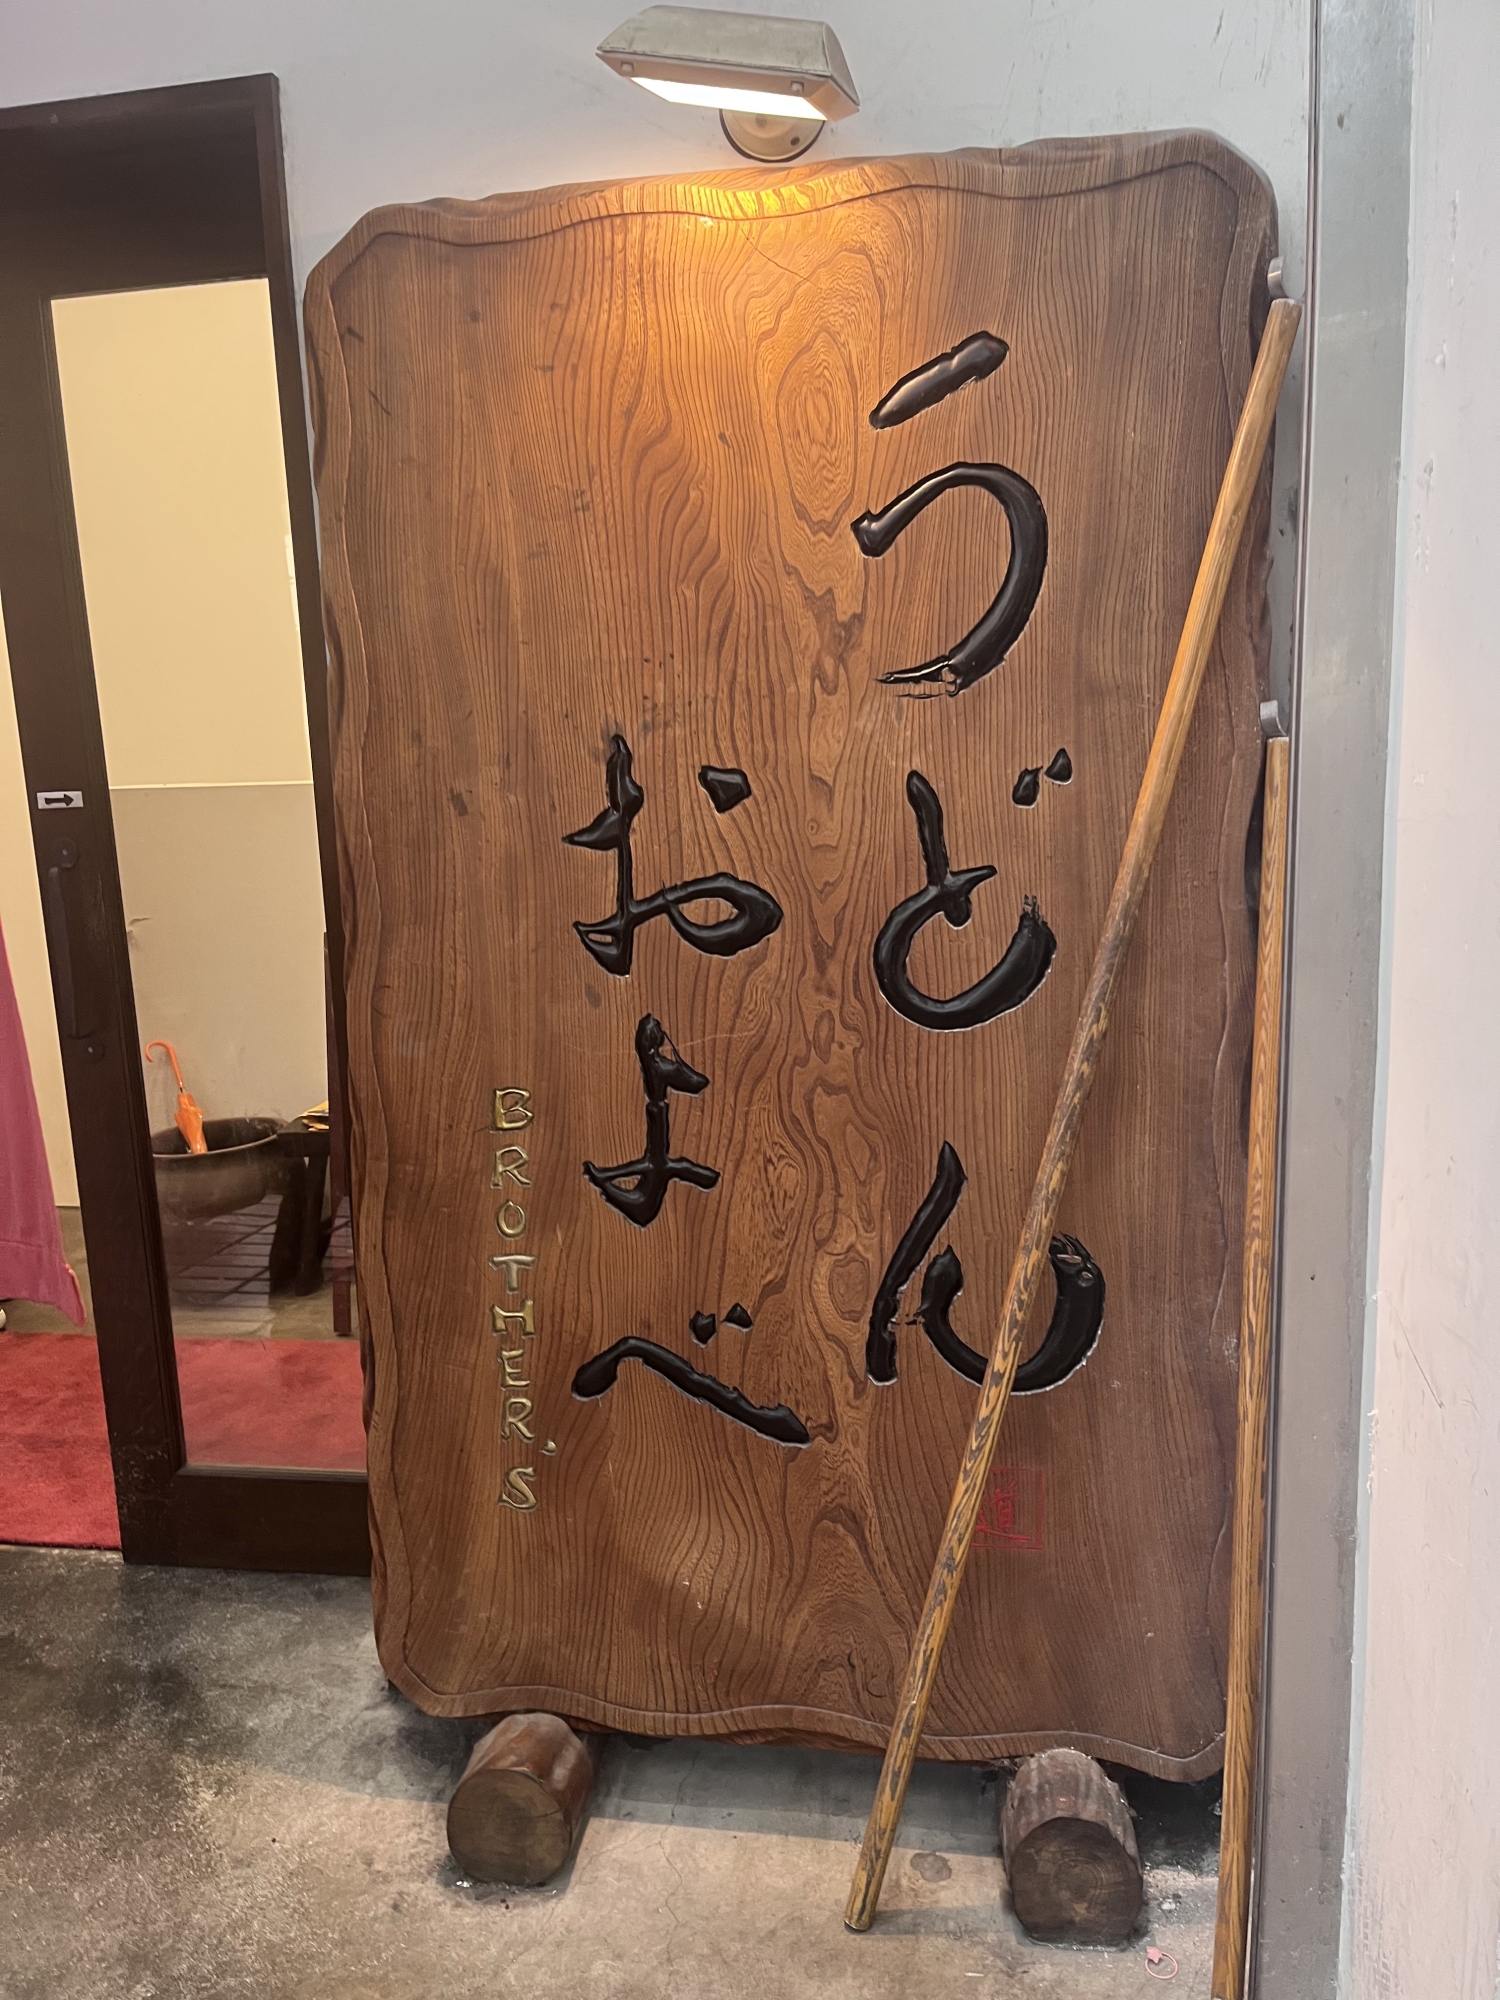 うどん
およべ
BROTHER'S